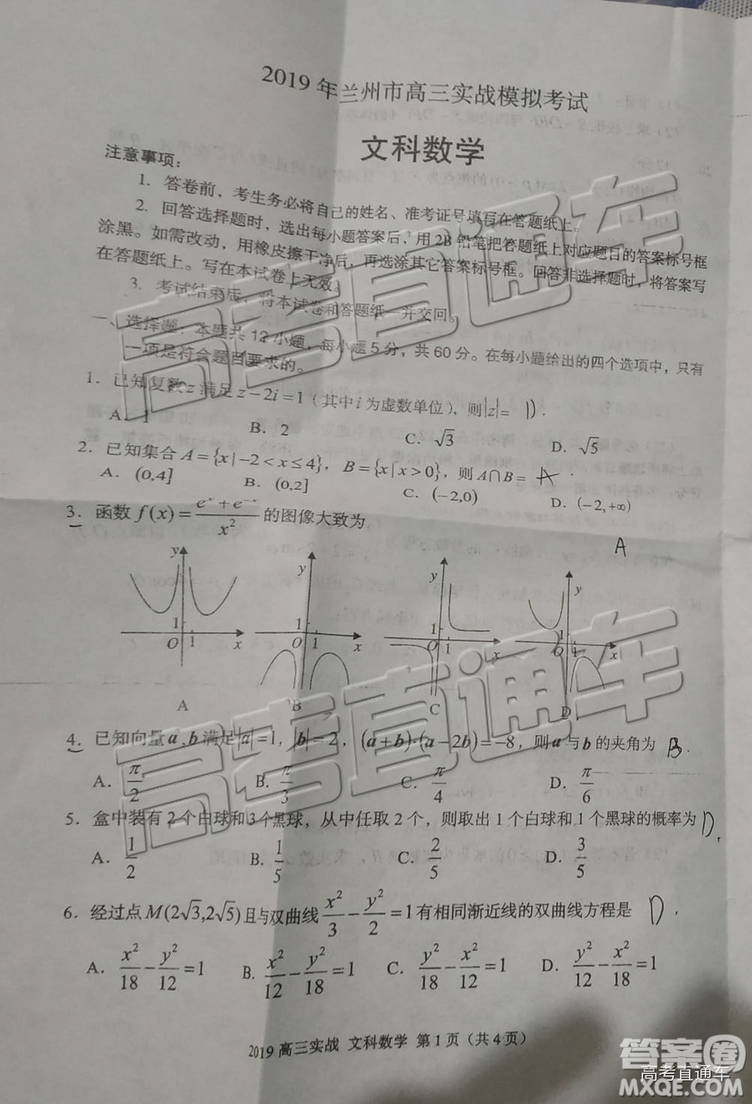 2019 年兰州市高三实战模拟考试
文科数学
注意事项：
1. 答卷前，考生务必将自己的姓名、准考证号填写在答题纸上。
2. 回答选择题时，选出每小题答案后，用 2B 铅笔把答题纸上对应题目的答案标号框
涂黑。如需改动，用橡皮擦干净后，再选涂其它答案标号框。回答非选择题时，将答案写
在答题纸上。写在本试卷上无效。
3. 考试结束后，将本试卷和答题纸一并交回。
一、选择题：本题共 12 小题，每小题 5 分，共 60 分。在每小题给出的四个选项中，只有
一项是符合题目要求的。
1. 已知复数 z 满足 z-2i=1（其中 i 为虚数单位），则|z|= D.
A. 1 B. 2 C. √3 D. √5
2. 已知集合 A={x|-2<x≤4}，B={x|x>0}，则 A∩B= A.
A. (0,4] B. (0,2] C. (-2,0) D. (-2,+∞)
3. 函数 f(x)=(e^x+e^-x)/x^2 的图像大致为
A
y y y y
1 1 1 1
O 1 x O 1 x O 1 x O 1 x
A B C D
4. 已知向量 a,b 满足|a|=1，|b|=2，(a+b)·(a-2b)=-8，则 a 与 b 的夹角为 B.
A. π/2 B. π/3 C. π/4 D. π/6
5. 盒中装有 2 个白球和 3 个黑球，从中任取 2 个，则取出 1 个白球和 1 个黑球的概率为 D.
A. 1/2 B. 1/5 C. 2/5 D. 3/5
6. 经过点 M(2√3,2√5) 且与双曲线 x^2/3-y^2/2=1 有相同渐近线的双曲线方程是 D.
A. x^2/18-y^2/12=1 B. x^2/12-y^2/18=1 C. y^2/18-x^2/12=1 D. y^2/12-x^2/18=1
2019 高三实战 文科数学 第 1 页（共 4 页）
高考直通车
高考直通车
答案圈
高考直通车
MXQE.COM